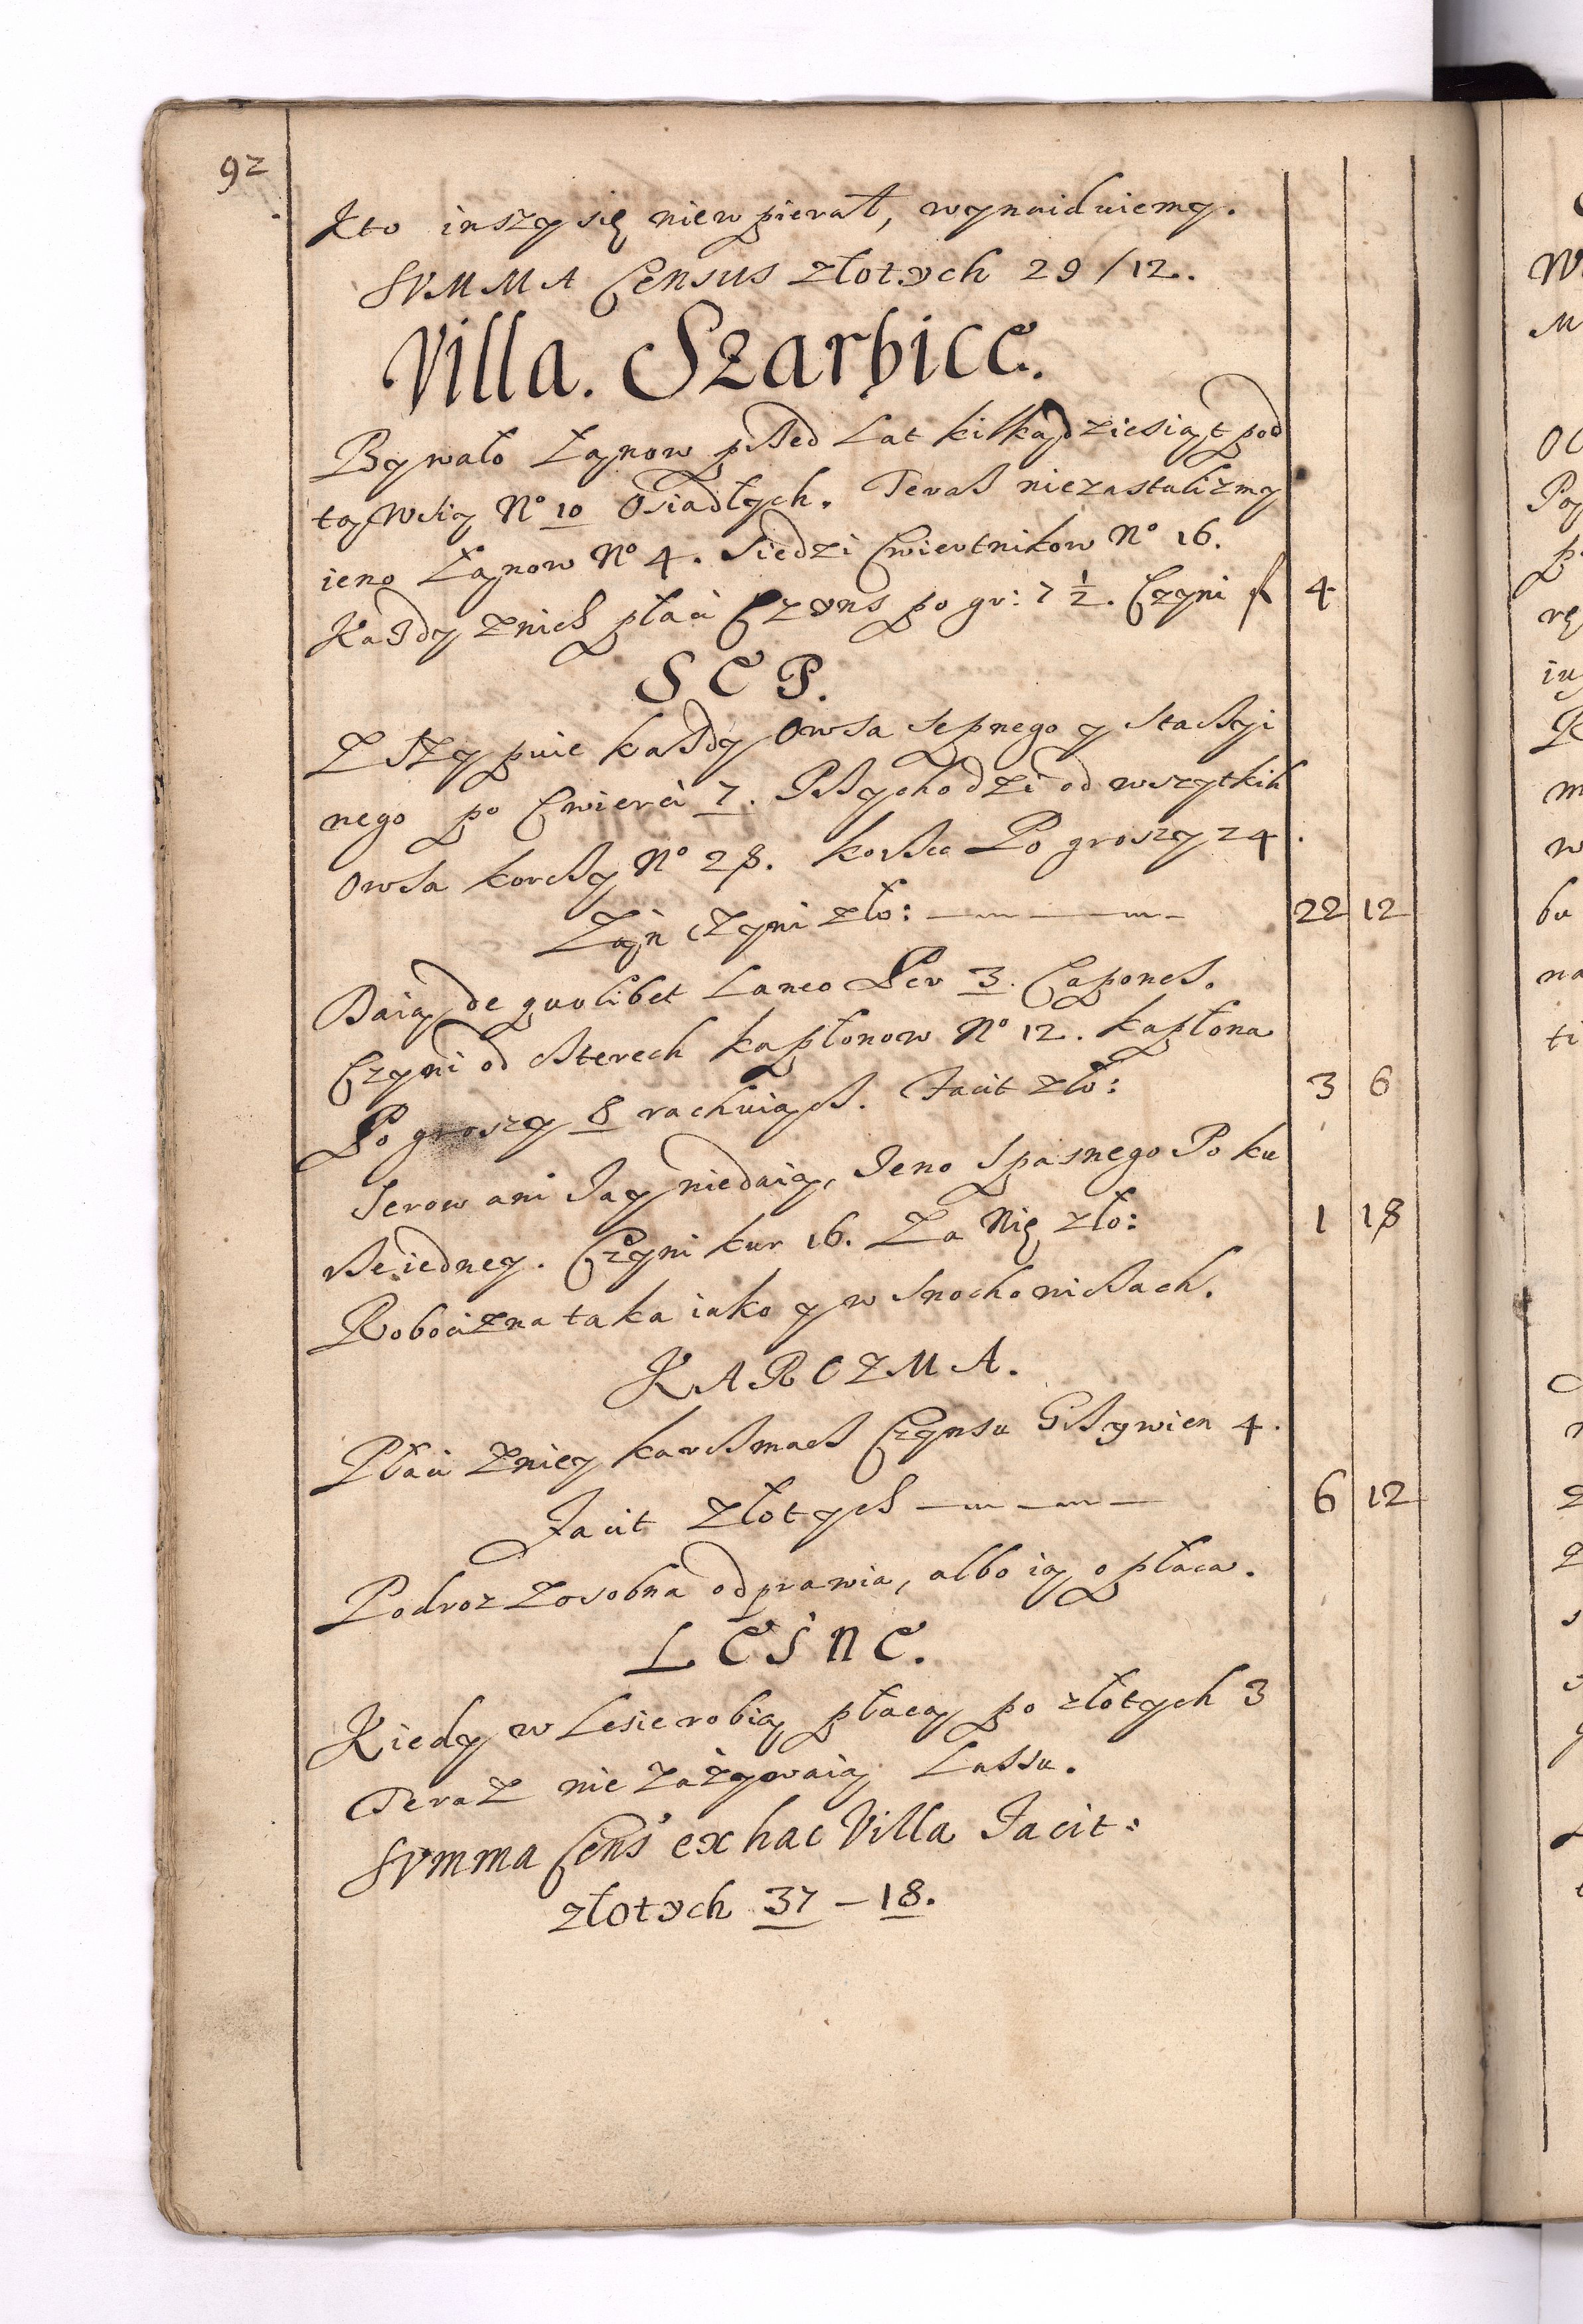 92
Kto inszy się niewpierał, wynaiduiemy.
SVMMA Census złotych 29/12.
Villa. Szarbice.
Bywało Łanow przed Lat kilkądziesiąt pod
tą Wsią No 10 Osiadłych. Teraz niezastalizmy
ieno Łanow No 4. Siedzi Cwiertnikow No 16.
Kazdy znich płaci Czyns po gr: 7 1/2. Czyni f 4
SEP.
Zszypuie kazdy Owsa sepnego y stacyi
nego po Cwierci 7. Przychodzi od wszytkich
Owsa korcy No 28. korca Po groszy 24.
Zań czyni zło: 22 12
Daią de quolibet Laneo Per 3. Capones.
Czyni od czterech kapłonow No 12. kapłona
Po groszy 8 rachuiąc. Facit zło: 3 6
Serow ani Jay niedaią, Jeno Spasnego Po ku
rze iedney. Czyni kur 16. Za Nię zło: 1 18
Robocizna taka iako y w Snochowicach.
KARCZMA.
Płaci zniey karczmarz Czynsu Grzywien 4.
Facit Złotych 6 12
Podroz zosobna odprawia, albo ią opłaca.
LESNE.
Kiedy w Lesie robią płacą po złotych 3
Teraz nie zażywaią Lassu.
SVmma Cens' ex hac Villa Facit:
złotych 37 – 18.